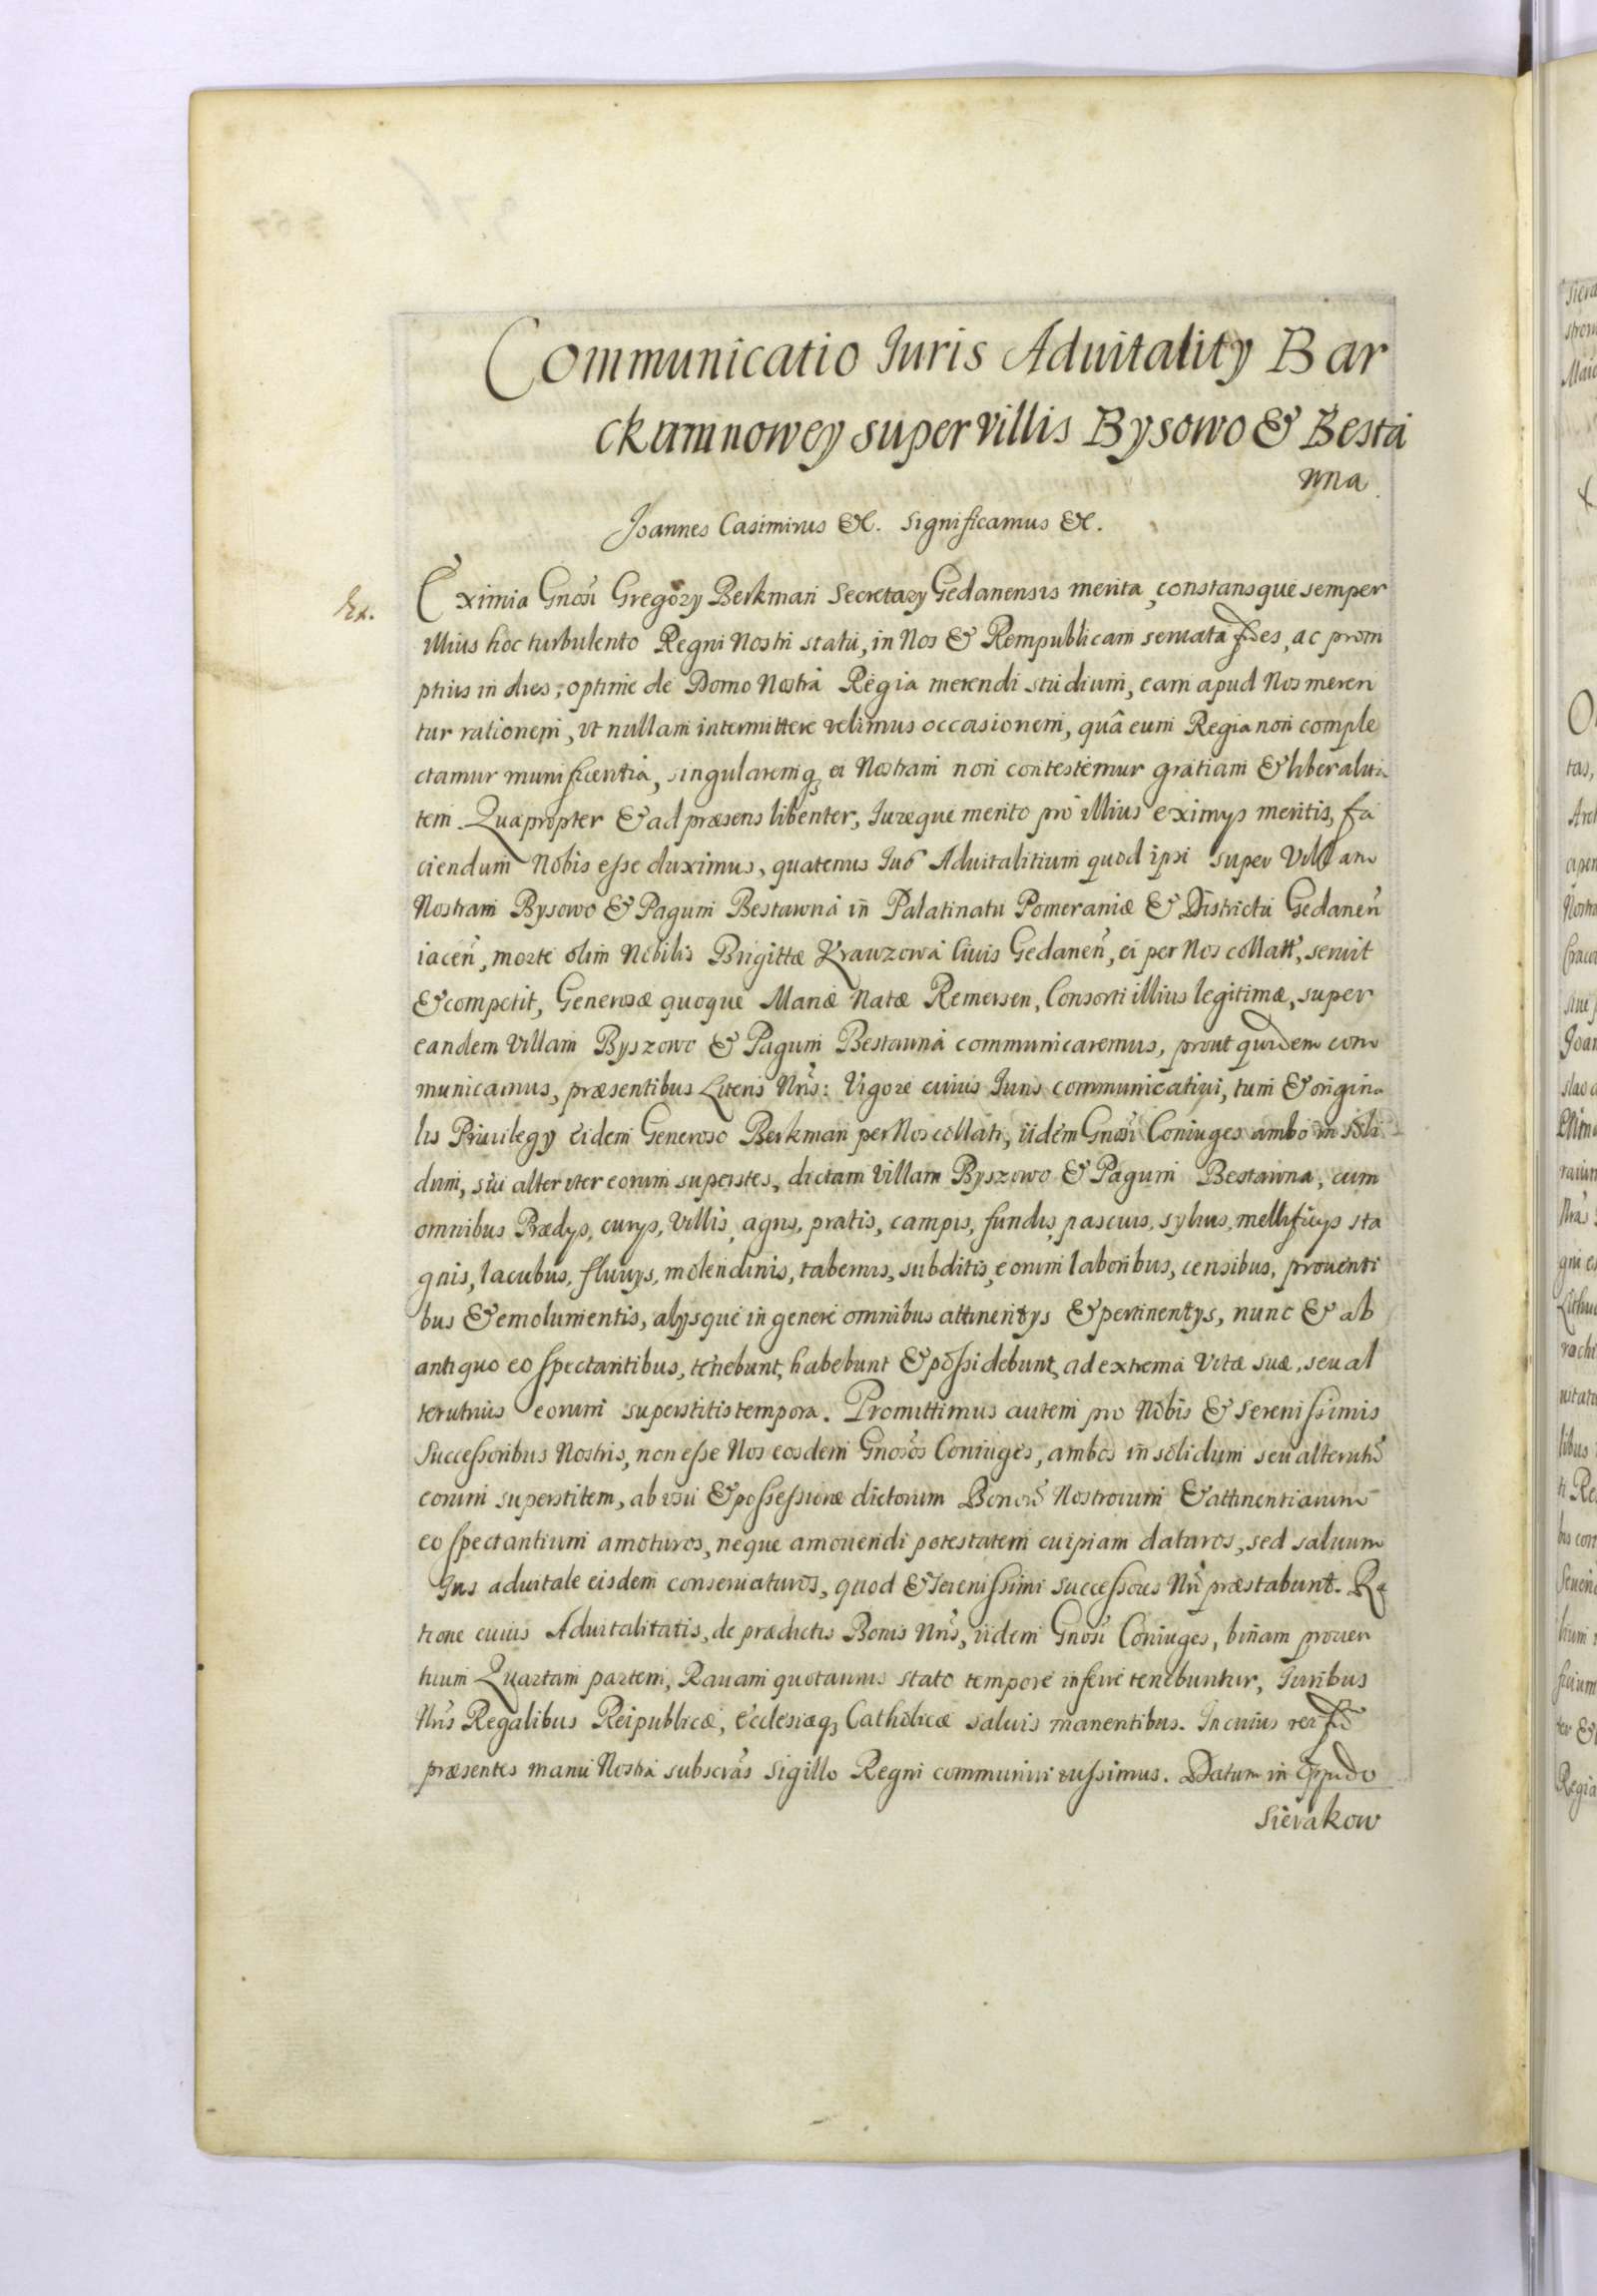 Communicatio Iuris Aduitality Bar
ckamnowey super villis Bysowo & Besta
wna
Joannes Casimirus &c. Significamus &c.
Ex.
Eximia Gnosi Gregory Berkman Secretary Gedanensis merita, constansque semper
illius hoc turbulento Regni Nostri statu, in Nos & Rempublicam seruata fides, ac prom
ptius in dies, optime de Domo Nostra Regia merendi studium, eam apud Nos meren
tur rationem, vt nullam intermittere velimus occasionem, quâ eum Regia non comple
ctamur munificentia, singularemq, ei Nostram non contestemur gratiam & liberalita
tem. Quapropter & ad præsens libenter, Iureque merito pro illius eximys meritis, fa
ciendum Nobis esse duximus, quatenus Ius Aduitalitium quod ipsi super Villam
Nostram Bysowo & Pagum Bestawna in Palatinatu Pomeraniæ & Districtu Gedanen
iacen, morte olim Nobilis Brigittæ Krawzowa Ciuis Gedanen, ei per Nos collatt, seruit
& competit, Generosæ quoque Mariæ Natæ Remersen, Consorti illius legitimæ, super
eandem Villam Byszowo & Pagum Bestauna communicaremus, prout quidem com
municamus, præsentibus Literis Nris: Vigore cuius Iuris communicatiui, tum & origina
lis Priuilegy eidem Generoso Berkman per Nos collati, iidem Gnosi Coniuges ambo in soli
dum, siu alter vter eorum superstes, dictam Villam Byszowo & Pagum Bestawna, cum
omnibus Prædys, curys, Villis, agris, pratis, campis, fundis, pascuis, syluis, mellificys sta
gnis, lacubus, fluuys, molendinis, tabernis, subditis, eorum laboribus, censibus, prouenti
bus & emolumentis, alysque in genere omnibus attinentys & pertinentys, nunc & ab
antiquo eo spectantibus, tenebunt, habebunt & possidebunt, ad extrema Vitæ suæ, seu al
terutrius eorum superstitis tempora. Promittimus autem pro Nobis & Serenissimis
Successoribus Nostris, non esse Nos eosdem Gnosos Coniuges, ambos in solidum seu alterutr
eorum superstitem, ab vsu & possessione dictorum Bonor Nostrorum & attinentiarum
eo spectantium amoturos, neque amouendi potestatem cuipiam daturos, sed saluum
Ius aduitale eisdem conseruaturos, quod & Serenissimi Successores Nri præstabunt. Ra
tione cuius Aduitalitatis, de prædictis Bonis Nris, iidem Gnosi Coniuges, binam prouen
tuum Quartam partem, Rauam quotannis stato tempore inferre tenebuntur, Iuribus
Nris Regalibus Reipublicæ, Ecclesiæq, Catholicæ saluis manentibus. In cuius rei fid
præsentes manu Nostra subscras Sigillo Regni communiri iussimus. Datum in Oppido
Sierakow